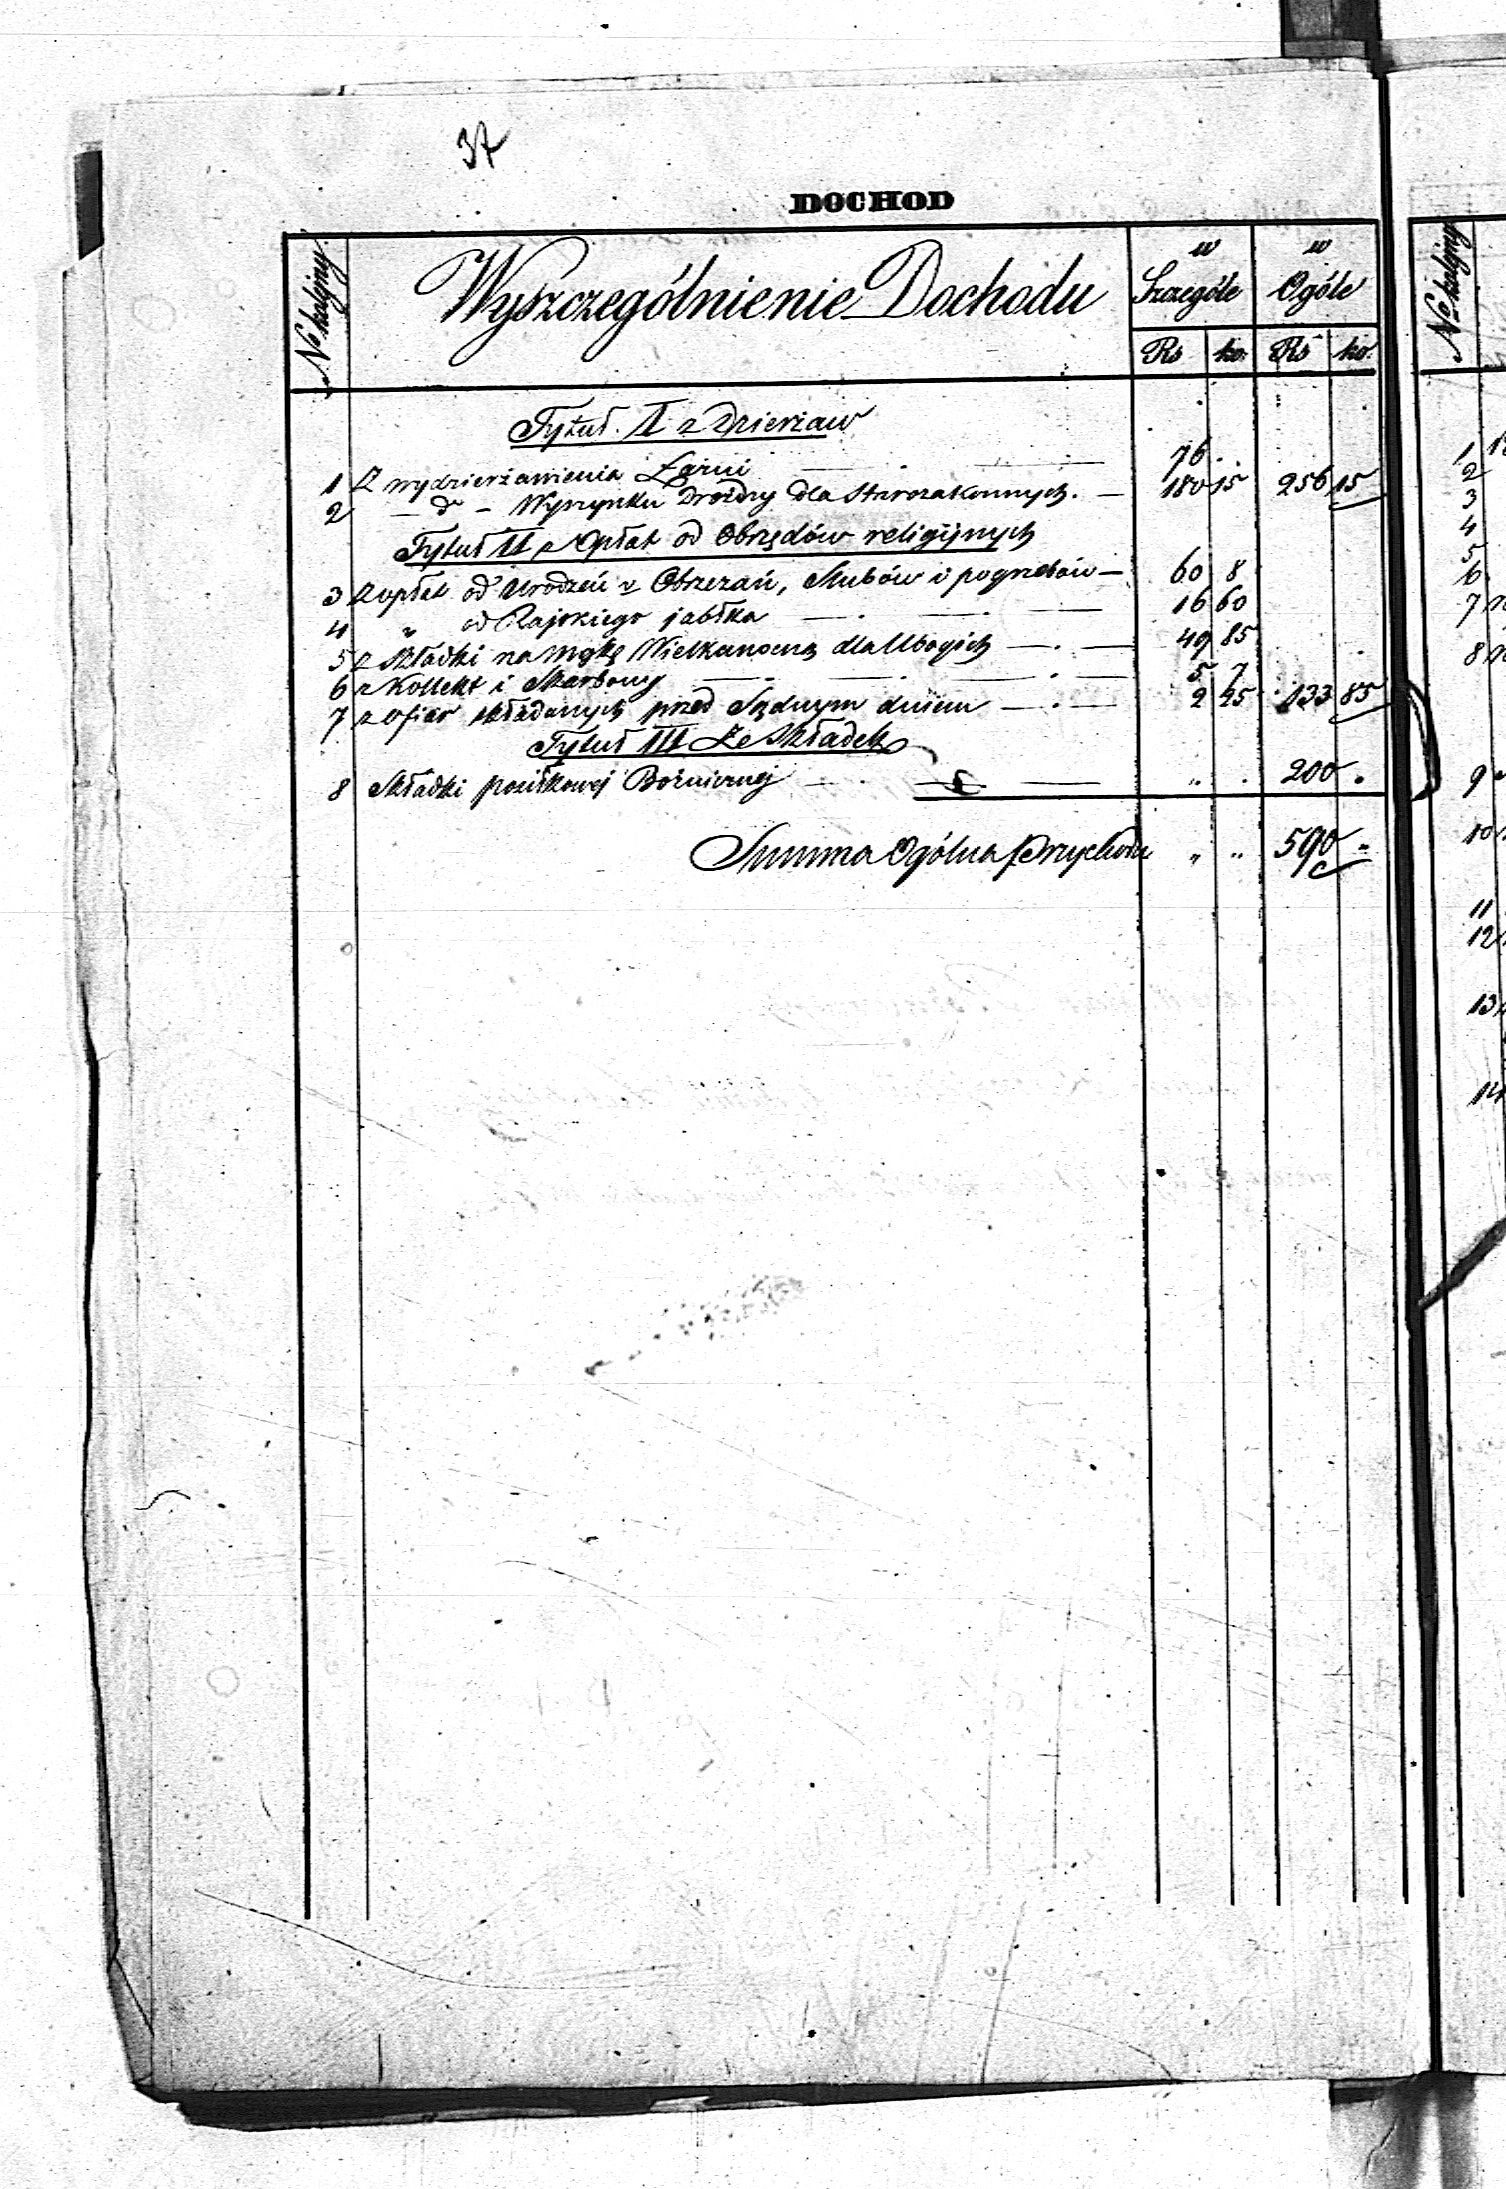 37
DOCHOD
N° kolejny Wyszczególnienie Dochodu w Szczególe w Ogóle
Rs ko. Rs ko.
Tytuł I z Dzierżaw
1 Z wydzierżawienia Łaźni 76 .
2 — do — Wyszynku Drożdży dla Starozakonnych. — 180 15 256 15
Tytuł II z Opłat od Obrzędów religijnych
3 Z opłat od Urodzeń v Obrzezań, Ślubów i pogrzebów — 60 8
4 " od Rajskiego jabłka — 16 60
5 z Składki na mąkę Wielkanocną dla Ubogich — 49 85
6 z Kollekt i Skarbony — 5 7
7 z ofiar składanych przed Sądnym dniem — 2 25 133 85
Tytuł III Ze Składek
8 Składki posiłkowej Bożnicznej — " . 200 .
Summa Ogólna Przychodu " " 590 "
N° kolejny
1
2
3
4
5
6
7
8
9
10
11
12
13
14